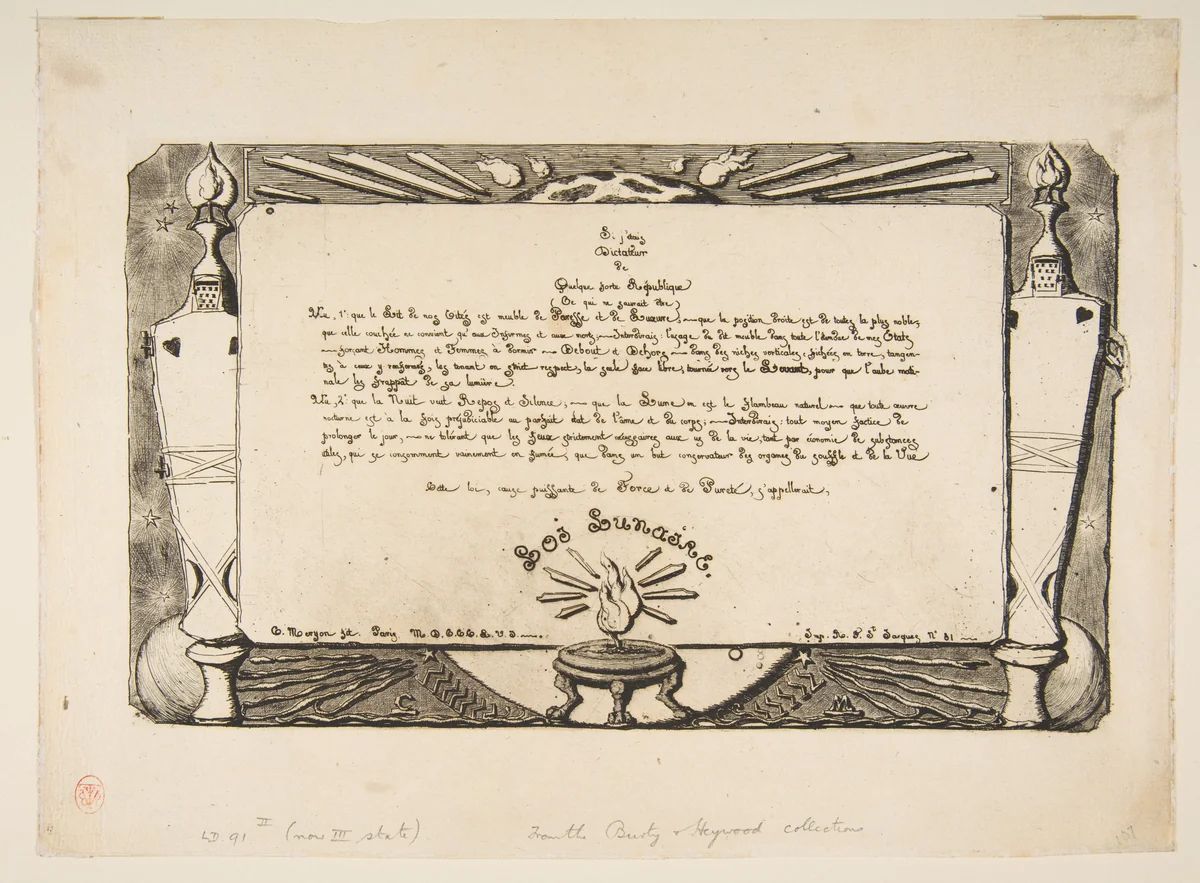 Si j'étais
Dictateur
de
Quelque sorte République
(Ce qui ne saurait être)
Vu, 1º que le Lit de nos Cités est meuble de Paresse et de Luxure; que la position droite est de toutes la plus noble;
que celle couchée ne convient qu'aux Infirmes et aux morts, Interdirais: l'usage du dit meuble dans toute l'étendue de mes Etats
forçant Hommes et Femmes à dormir Debout et Dehors dans des niches verticales, fichées en terre, tangen-
à ceux y renfermés, les tenant en strict respect, la seule face libre, tournée vers le Levant, pour que l'aube mati-
nale les frappât de sa lumière.
Vu, 2º que la Nuit veut Repos et Silence; que la Lune en est le flambeau naturel que toute œuvre
nocturne est à la fois préjudiciable au parfait état de l'âme et du corps; Interdirais: tout moyen factice de
prolonger le jour, ne tolérant que les feux strictement nécessaires aux us de la vie, tant par économie de substances
utiles, qui se consomment vainement en fumée, que dans un but conservateur des organes du souffle et de la Vue
Cette loi, cause puissante de Force et de Pureté, s'appellerait,
Loi Lunaire.
C. Meryon fit. Paris M.D.CCC.L.V.I.
Imp. R. F. St Jacques Nº 81
LD. 91 II (now III state)
From the Burty & Heywood collections